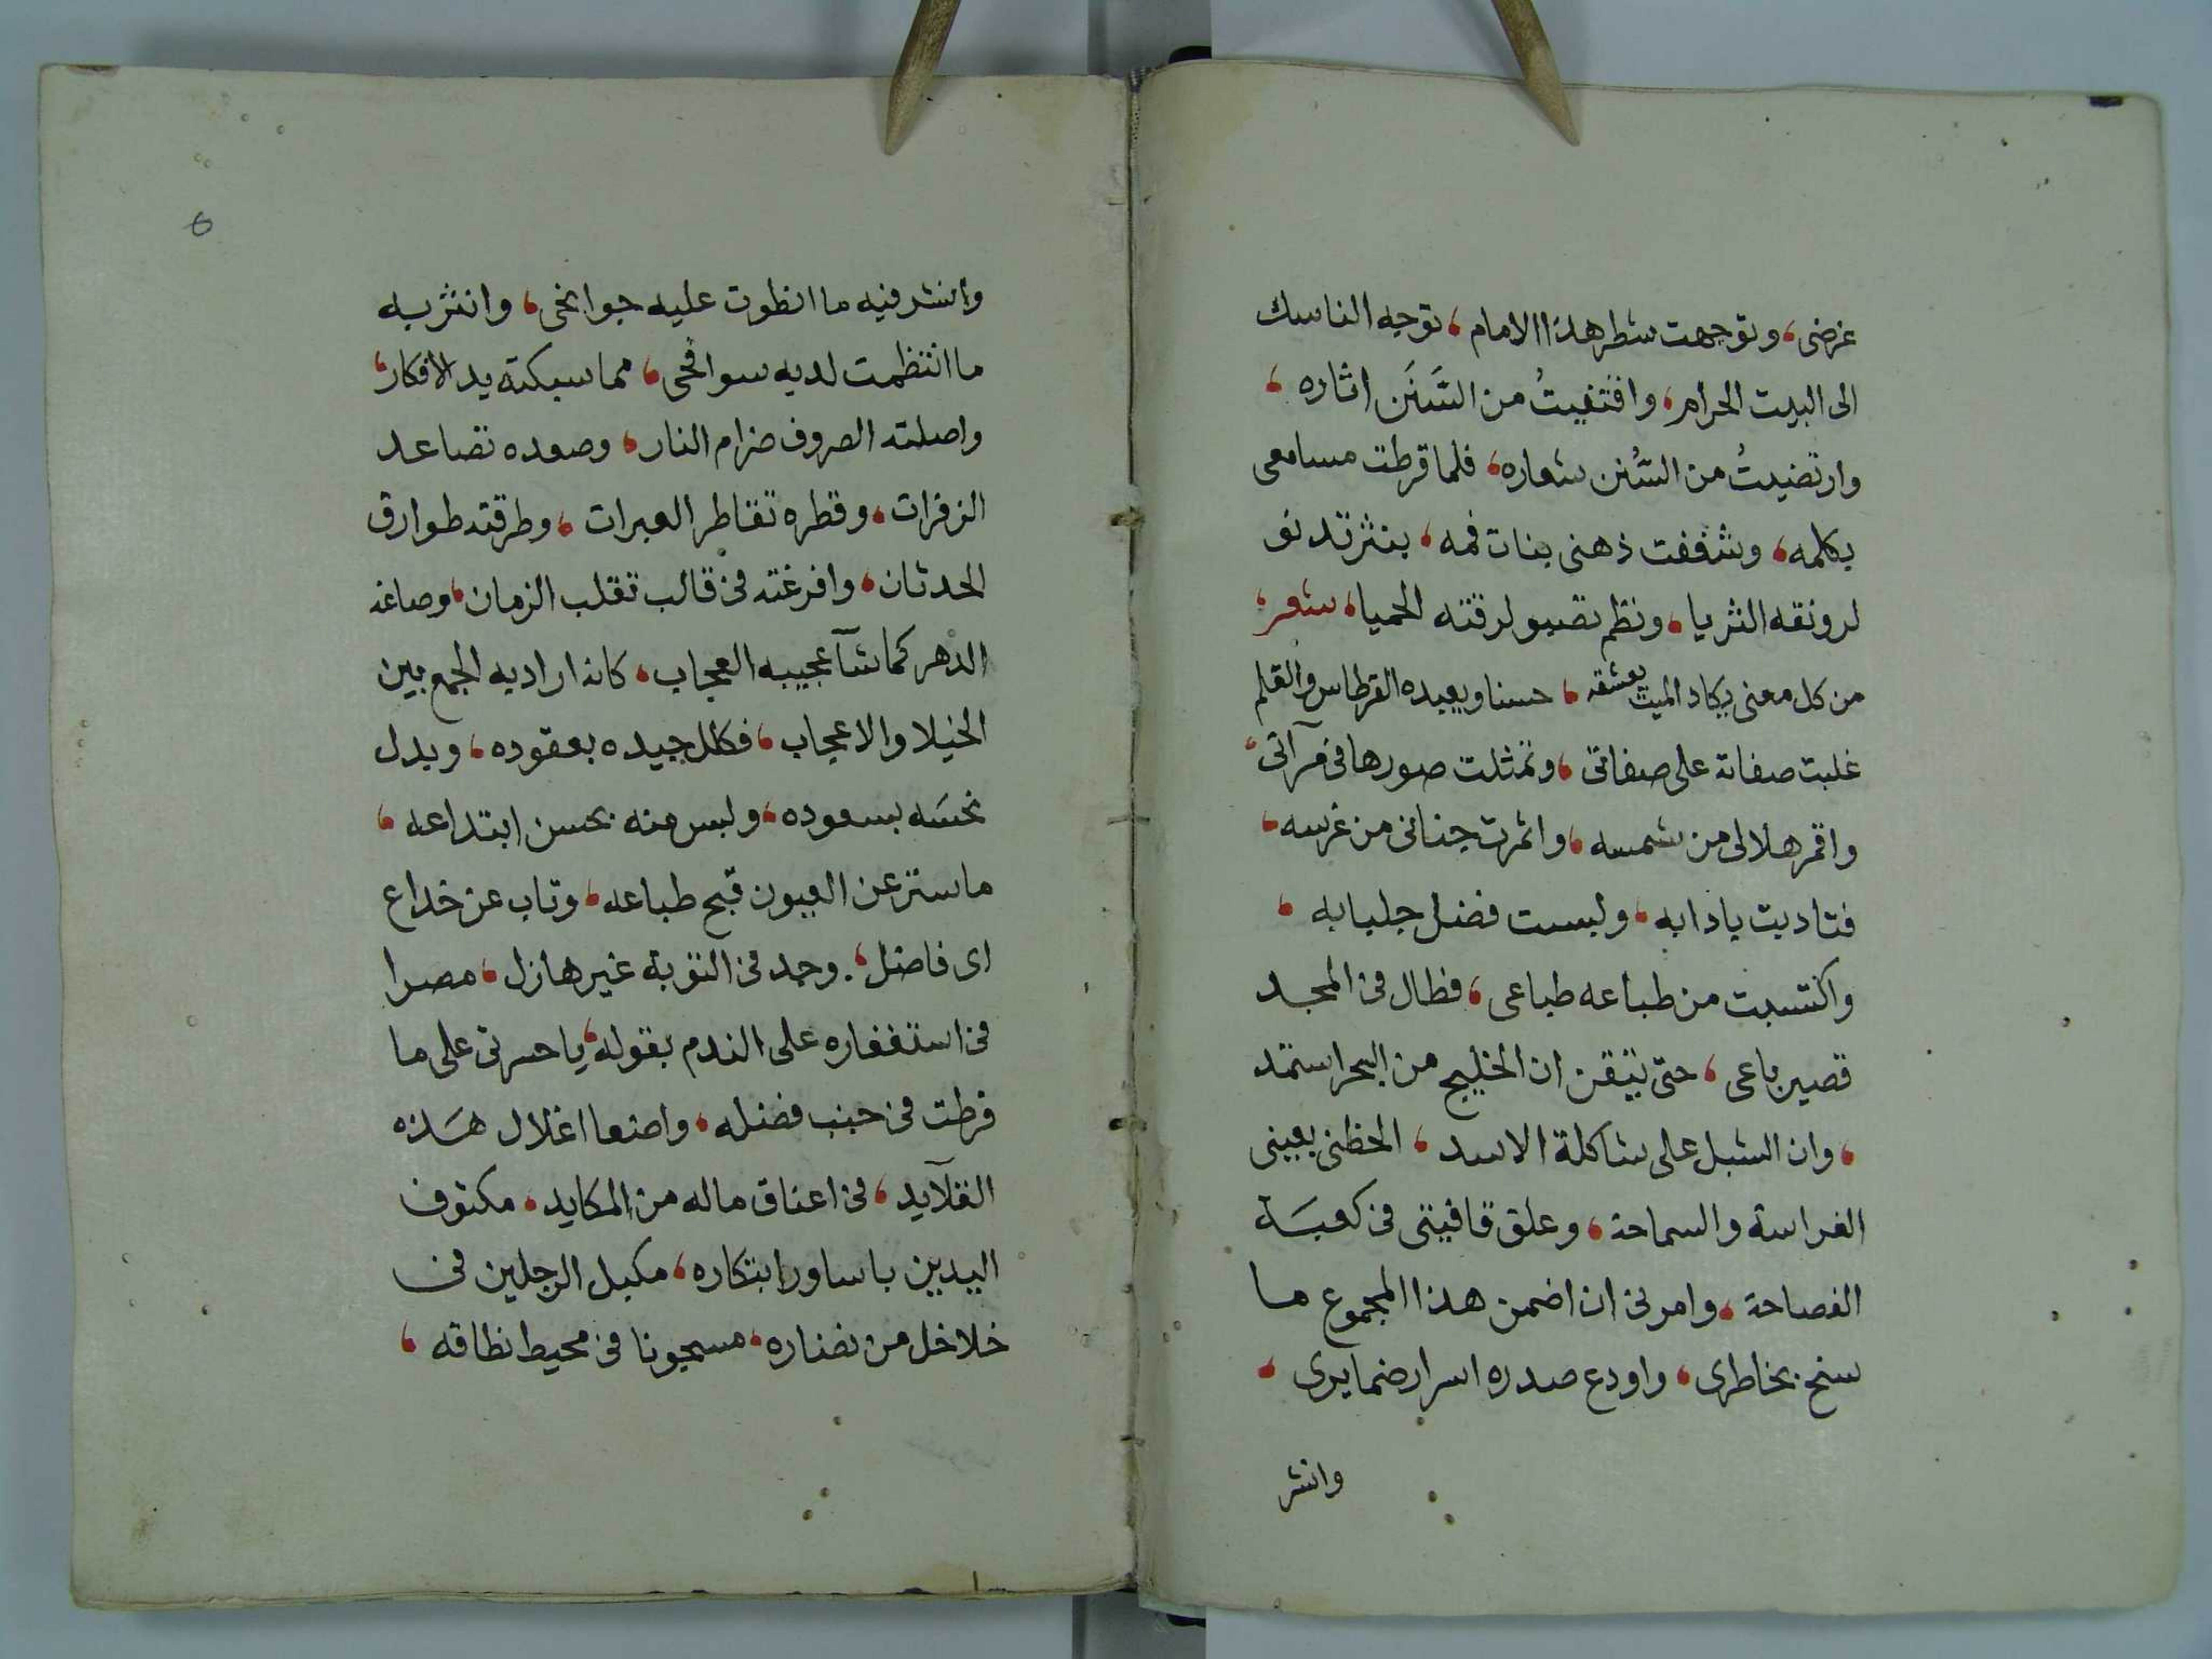 غرضى، وتوجهت شطر هذا الامام، توجه الناسك
الى البيت الحرام، واقتفيتُ من السَّنَن اثاره،
وارتضيتُ من السُّنن شعاره، فلما قرطت مسامعى
بكلمه، وشففت ذهنى بنات فمه، بنثر تدنو
لرونقه الثريا، ونظم تصبو لرقته الحميا، شعر؛
من كل معنى يكاد الميت يعشقه، حسنا ويعبده القرطاس والقلم
غلبت صفاته على صفاتى، وتمثلت صورها فى مرآتى،
واقمر هلالى من شمسه، واثمرت جنانى من غرسه،
فتاديت بادابه، ولبست فضل جلبابه،
واكتسبت من طباعه طباعى، فطال فى المجد
قصير باعى، حتى تيقن ان الخليج من البحر استمد
، وان الشبل على شاكلة الاسد، الحظنى بعينى
الفراسة والسماحة، وعلق قافيتى فى كعبَة
الفصاحة، وامرنى ان اضمن هذا المجموع ما
سنح بخاطرى، واودع صدره اسرار ضمايرى،
وانشر
6
وانشر فيه ما انطوت عليه جوانحى، وانثر به
ما انتظمت لديه سوافحى، مما سبكته يد الافكار،
واصلته الصروف ضرام النار، وصعده تصاعد
الزفرات، وقطره تقاطر العبرات، وطرقته طوارق
الحدثان، وافرغته فى قالب تقلب الزمان، وصاغه
الدهر كما شآ عجيبه العجاب، كانه اراد به الجمع بين
الخيلا والاعجاب، فكلل جيده بعقوده، وبدل
نحسَه بسعوده، ولبس منه بحسن ابتداعه،
ما ستر عن العيون قبح طباعه، وتاب عن خداع
اى فاضل، وجد فى التوبة غير هازل، مصرا
فى استغفاره على الندم بقوله، ياحسرتى على ما
فرطت فى جنب فضله، واضعا اغلال هَذه
القلآيد، فى اعناق ماله من المكايد، مكتوف
اليدين باساور ابتكاره، مكبل الرجلين فى
خلاخل من نضاره، مسجونا فى محيط نطاقه،